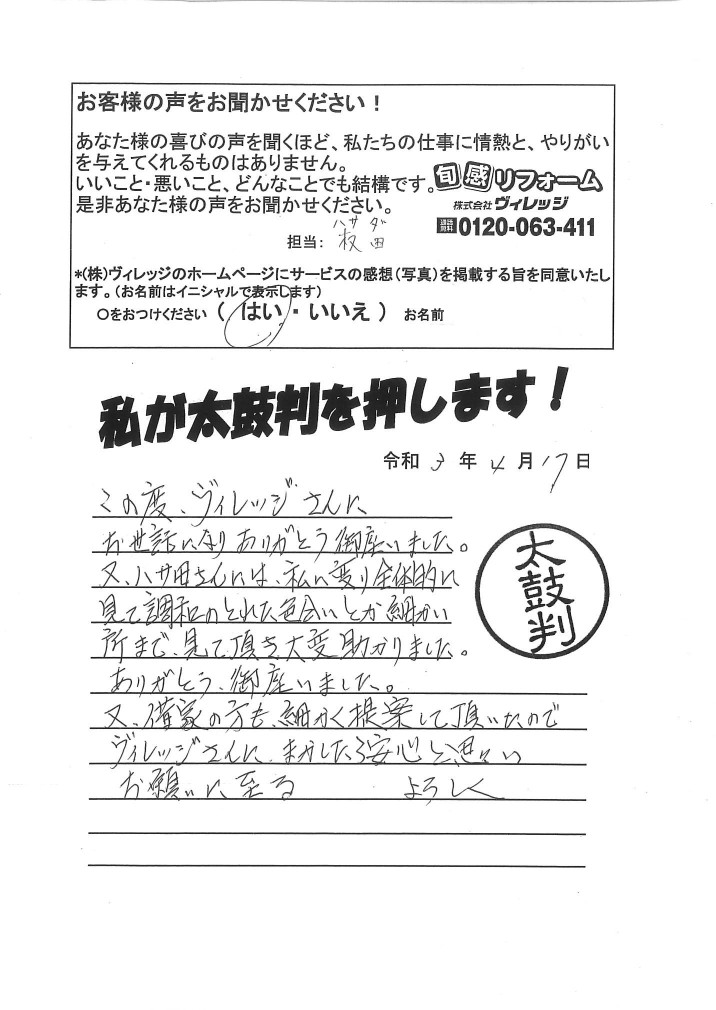 お客様の声をお聞かせください！
あなた様の喜びの声を聞くほど、私たちの仕事に情熱と、やりがい
を与えてくれるものはありません。
いいこと・悪いこと、どんなことでも結構です。
是非あなた様の声をお聞かせください。
旬感リフォーム
株式会社ヴィレッジ
通話無料 0120-063-411
ハサダ
担当： 田
*（株）ヴィレッジのホームページにサービスの感想（写真）を掲載する旨を同意いたし
ます。（お名前はイニシャルで表示します）
○をおつけください （ はい ・ いいえ ） お名前
私が太鼓判を押します！
令和 3 年 4 月 17 日
この度、ヴィレッジさんに
お世話になりありがとう御座いました。
又、ハサ田さんには、私に変り全体的に
見て調和のとれた色合いとか細かい
所まで、見て頂き大変助かりました。
ありがとう、御座いました。
又、借家の方も、細かく提案して頂いたので
ヴィレッジさんに、まかしたら安心と思い
お願いに至る よろしく
太鼓判